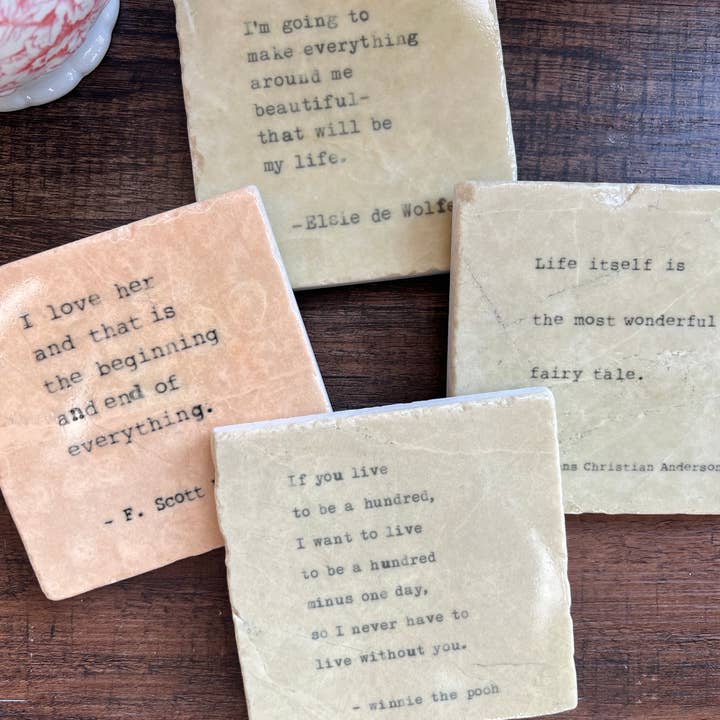 I'm going to
make everything
around me
beautiful-
that will be
my life.
-Elsie de Wolfe
I love her
and that is
the beginning
and end of
everything.
- F. Scott
Life itself is
the most wonderful
fairy tale.
Christian Anderson
If you live
to be a hundred,
I want to live
to be a hundred
minus one day,
so I never have to
live without you.
- winnie the pooh